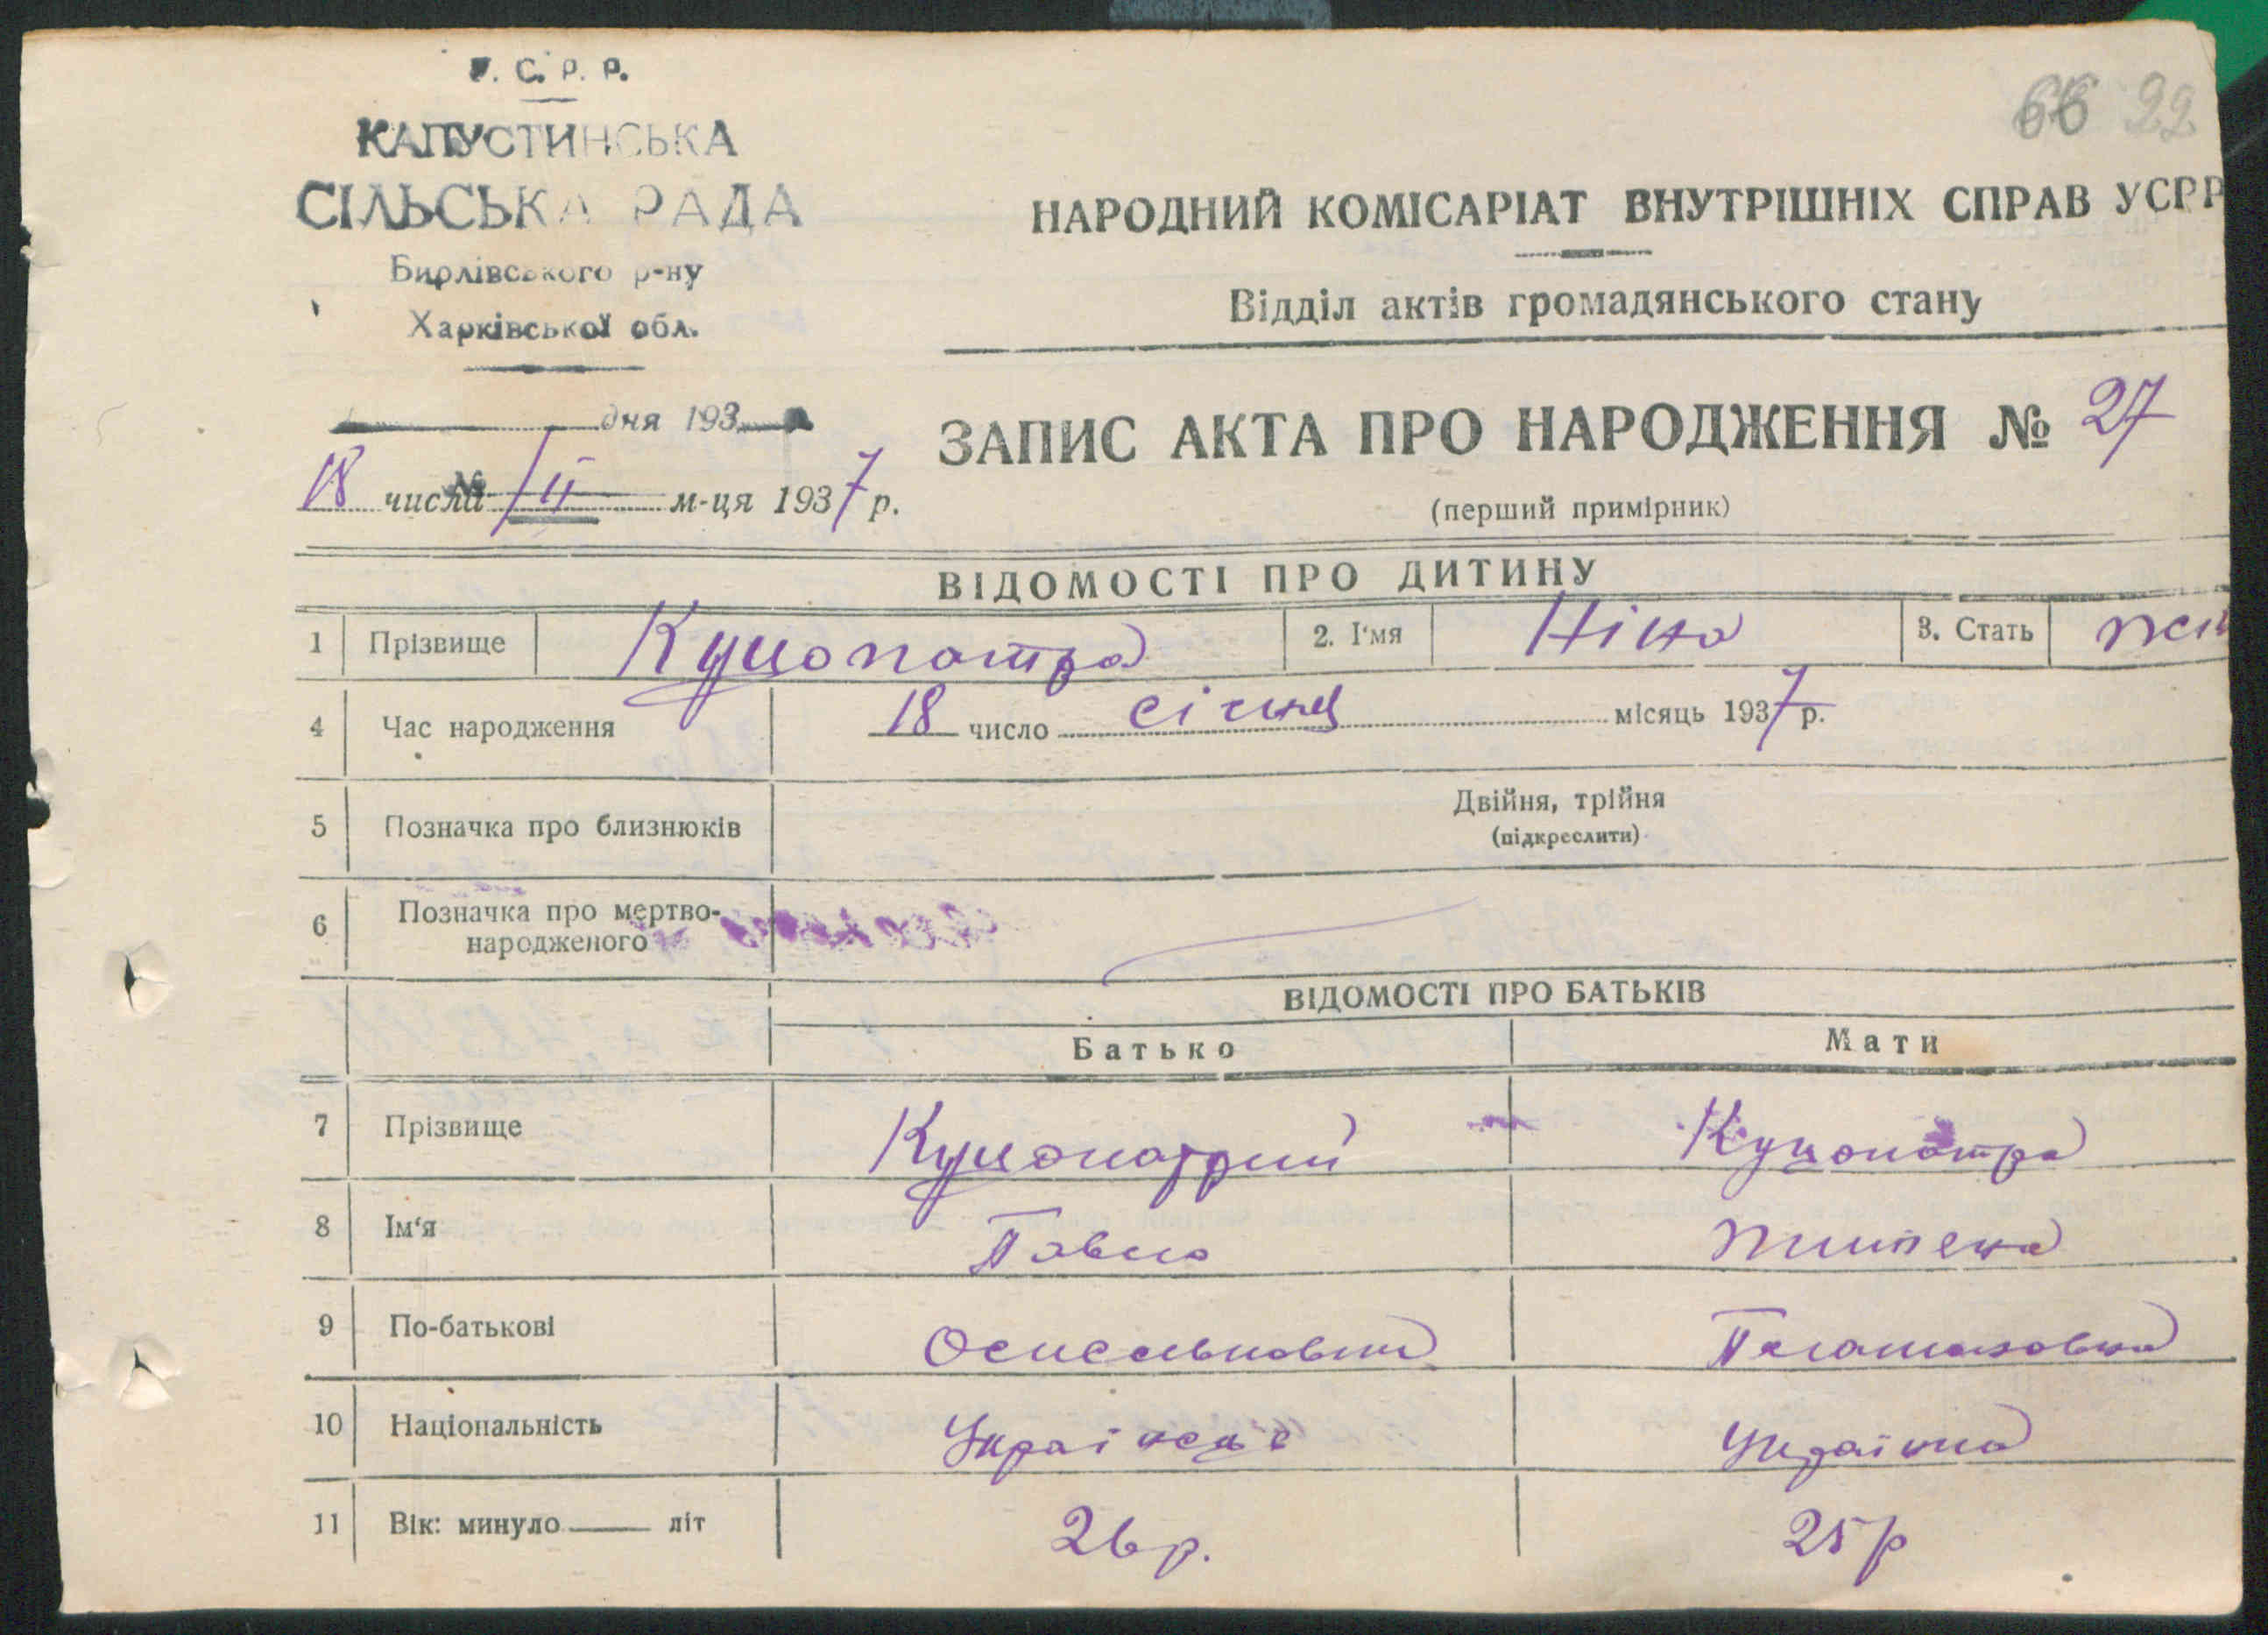 У. С. Р. Р.
КАПУСТИНСЬКА
СІЛЬСЬКА РАДА
Бирлівського р-ну
Харківської обл.
дня 193
№
18 числа II м-ця 1937 р.
66 22
НАРОДНИЙ КОМІСАРІАТ ВНУТРІШНІХ СПРАВ УСРР
Відділ актів громадянського стану
ЗАПИС АКТА ПРО НАРОДЖЕННЯ № 27
(перший примірник)
ВІДОМОСТІ ПРО ДИТИНУ
1 Прізвище Куцопатра 2. І'мя Ніна 3. Стать жін
4 Час народження 18 число січня місяць 1937 р.
5 Позначка про близнюків Двійня, трійня
(підкреслити)
6 Позначка про мертво-
народженого
ВІДОМОСТІ ПРО БАТЬКІВ
Батько Мати
7 Прізвище Куцопатрий Куцопатра
8 Ім'я Павло
9 По-батькові
10 Національність Українець Українка
11 Вік: минуло літ 26 р. 25 р